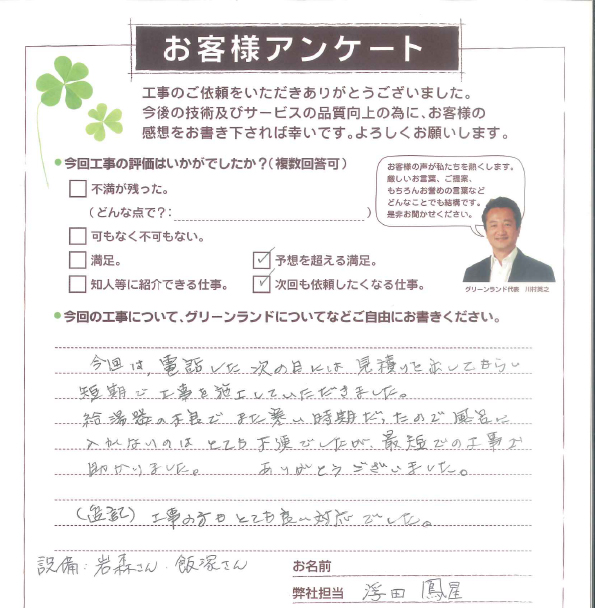 お客様アンケート
工事のご依頼をいただきありがとうございました。
今後の技術及びサービスの品質向上の為に、お客様の
感想をお書き下されば幸いです。よろしくお願いします。
●今回工事の評価はいかがでしたか？（複数回答可）
不満が残った。
（どんな点で？：　）
可もなく不可もない。
満足。
✓予想を超える満足。
知人等に紹介できる仕事。
✓次回も依頼したくなる仕事。
お客様の声が私たちを熱くします。
厳しいお言葉、ご提案、
もちろんお誉めの言葉など
どんなことでも結構です。
是非お聞かせください。
グリーンランド代表　川村英之
●今回の工事について、グリーンランドについてなどご自由にお書きください。
今回は、電話した次の日には見積りを出してもらい
短期で工事を施工していただきました。
給湯器の不良でまだ寒い時期だったので風呂に
入れないのはとても不便でしたが、最短での工事で
助かりました。　ありがとうございました。
（追記）工事の方もとても良い対応でした。
設備：岩森さん・飯塚さん
お名前
弊社担当　浮田　鳳星